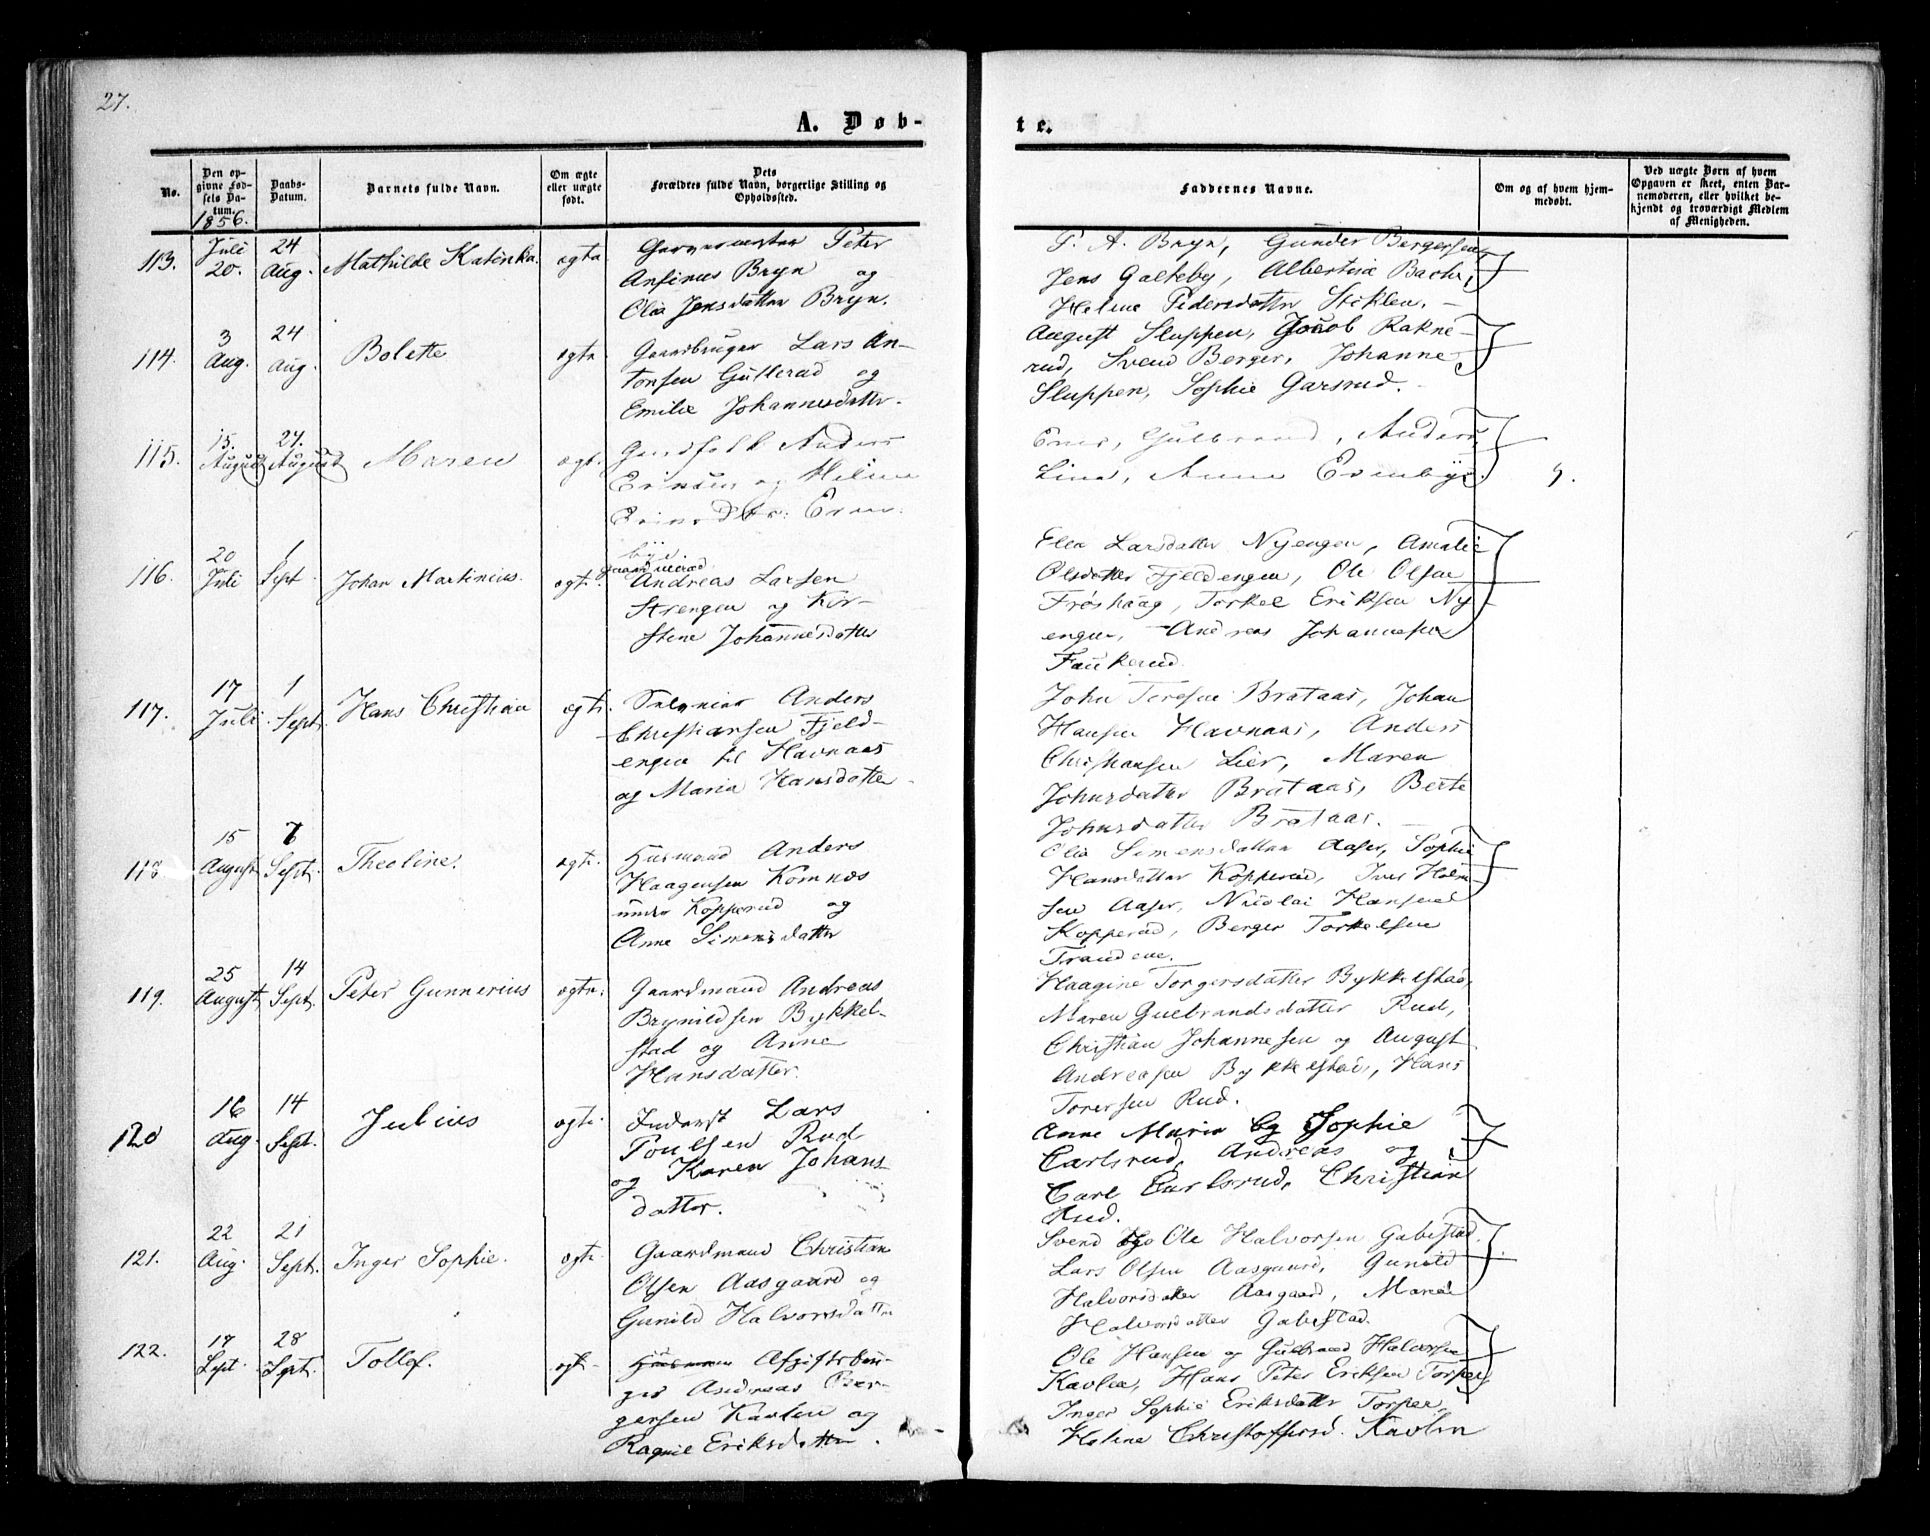 27.
A. Døb-
te.
No.
Den op-
givne Fød-
sels Da-
tum.
1856.
Daabs-
Datum.
Barnets fulde Navn.
Om ægte
eller uægte
født.
Dets
Forældres fulde Navn, borgerlige Stilling og
Opholdssted.
Faddernes Navne.
Om og af hvem hjem-
medøbt.
Ved uægte Børn af hvem
Opgaven er skeet, enten Bar-
nemoderen, eller hvilket be-
kjendt og troværdigt Medlem
af Menigheden.
113.
Juli
20.
24
Aug.
Mathilde Katinka.
ægte
Peter
Anfinus Bryn og
Olia Jensdatter Bryn.
P. A. Bryn, Gunder Bergersen
Jens Galteby, Albertine Bache,
Helene Pedersdatter Stiklen.
114.
3
Aug.
24
Aug.
Bolette
ægte
Gaardbruger Lars An-
tonsen Gullerud og
Emilie Johannesdatter.
August Sluppen, Jacob Rakne-
rud, Svend Berger, Johanne
Sluppen, Sophie Garsrud.
115.
15.
August
24.
August
Maren
ægt.
Anders
og Helene
Gulbrand, Anders
Lina, Anne Evenbye.
116.
20
Juli
1
Sept.
Johan Martinius.
ægte.
bye.
Gaardmand
Andreas Larsen
Strengen og Kir-
stine Johannesdatter
Ellen Larsdatter Nyengen, Amalie
Olsdatter Fjeldengen, Ole Olsen
Frøshaag, Torkel Eriksen Ny-
engen, Andreas Johannesen
Faukerud.
117.
17
Juli.
1
Sept.
Hans Christian
ægte.
Selveier Anders
Christiansen Fjeld-
engen til Havnaas
og Maria Hansdatter
John Toresen Brataas, Johan
Hansen Havnaas, Anders
Christiansen Lier, Maren
Johnsdatter Brataas, Berte
Johnsdatter Brataas.
118
15
August
7
Sept.
Theoline.
ægte.
Husmand Anders
Haagensen Komnæs
under Kopperud og
Anne Simensdatter
Olia Simensdatter Aaser, Sophie
Hansdatter Kopperud, Iver Halvor-
sen Aaser, Nicolai Hansen
Kopperud, Berger Torkelsen
119.
25
August
14
Sept.
Peter Gunnerius
ægte.
Gaardmand Andreas
Brynildsen Bykkel-
stad og Anne
Hansdatter.
Haagine Torgersdatter Bykkelstad,
Maren Gulbrandsdatter Rud,
Christian Johannesen og August
Andreasen Bykkelstad, Hans
Torersen Rud.
120
16
Aug.
14
Sept.
Julius
ægte.
Inderst Lars
Poulsen Rud
og Karen Johans-
datter.
Anne Maria og Sophie
Carlsrud, Andreas og
Carl Carlsrud, Christian
Rud.
121.
22
Aug.
21
Sept.
Inger Sophie.
ægte.
Gaardmand Christian
Olsen Aasgaard og
Gunild Halvorsdatter
Svend og Ole Halvorsen Gabestad.
Lars Olsen Aasgaard, Gunild
Halvorsdatter Aasgaard, Maria
Halvorsdatter Gabestad.
122.
17
Sept.
28
Sept.
Tollef.
ægte.
Afgiftsbru-
ger Andreas Ber-
gersen Kavlen og
Ragnil Eriksdatter.
Ole Hansen og Gulbrand Halvorsen
Kavlen, Hans Peter Eriksen Torper
Inger Sophie Eriksdatter Torper,
Helene Christoffersd. Kavlen